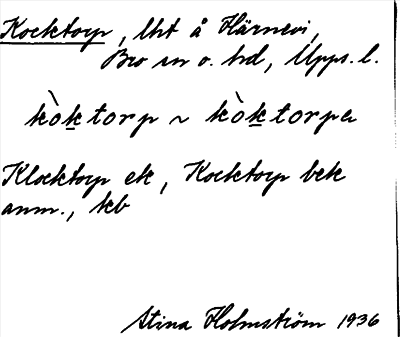 Kocktorp, lht å Härnevi,
Bro sn o. hd, Upps. l.
kòk torp ~ kòk torpa
Klocktorp ek, Kocktorp bek
anm., kb
Stina Holmström 1936